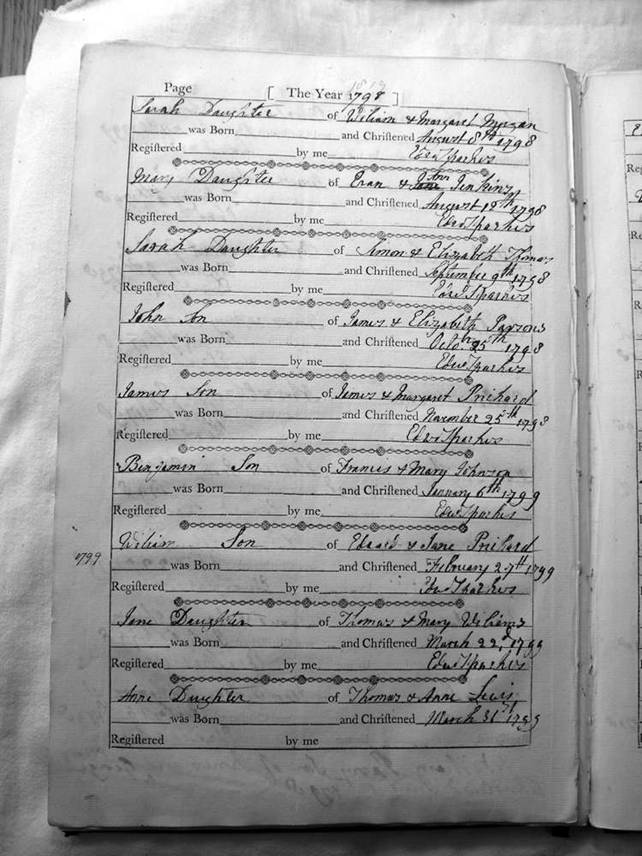 Page [ The Year 1798 ]
Sarah Daughter of William & Margaret Morgan
was Born and Chriſtened August 8th 1798
Regiſtered by me Edwd Sparkes
Mary Daughter of Evan & Jane Ann Jenkins
was Born and Chriſtened August 19th 1798
Regiſtered by me Edwd Sparkes
Sarah Daughter of Simon & Elizabeth Thomas
was Born and Chriſtened September 9th 1798
Regiſtered by me Edwd Sparkes
John Son of James & Elizabeth Parsons
was Born and Chriſtened Octobr 25th 1798
Regiſtered by me Edwd Sparkes
James Son of James & Margaret Prichard
was Born and Chriſtened November 25th 1798
Regiſtered by me Edwd Sparkes
Benjamin Son of Francis & Mary Johnson
was Born and Chriſtened January 6th 1799
Regiſtered by me Edwd Sparkes
1799 Wiliam Son of Edward & Jane Prichard
was Born and Chriſtened February 27th 1799
Regiſtered by me Edwd Sparkes
Jane Daughter of Thomas & Mary Wiliams
was Born and Chriſtened March 22d 1799
Regiſtered by me Edwd Sparkes
Anne Daughter of Thomas & Anne Lewis
was Born and Chriſtened March 31st 1799
Regiſtered by me